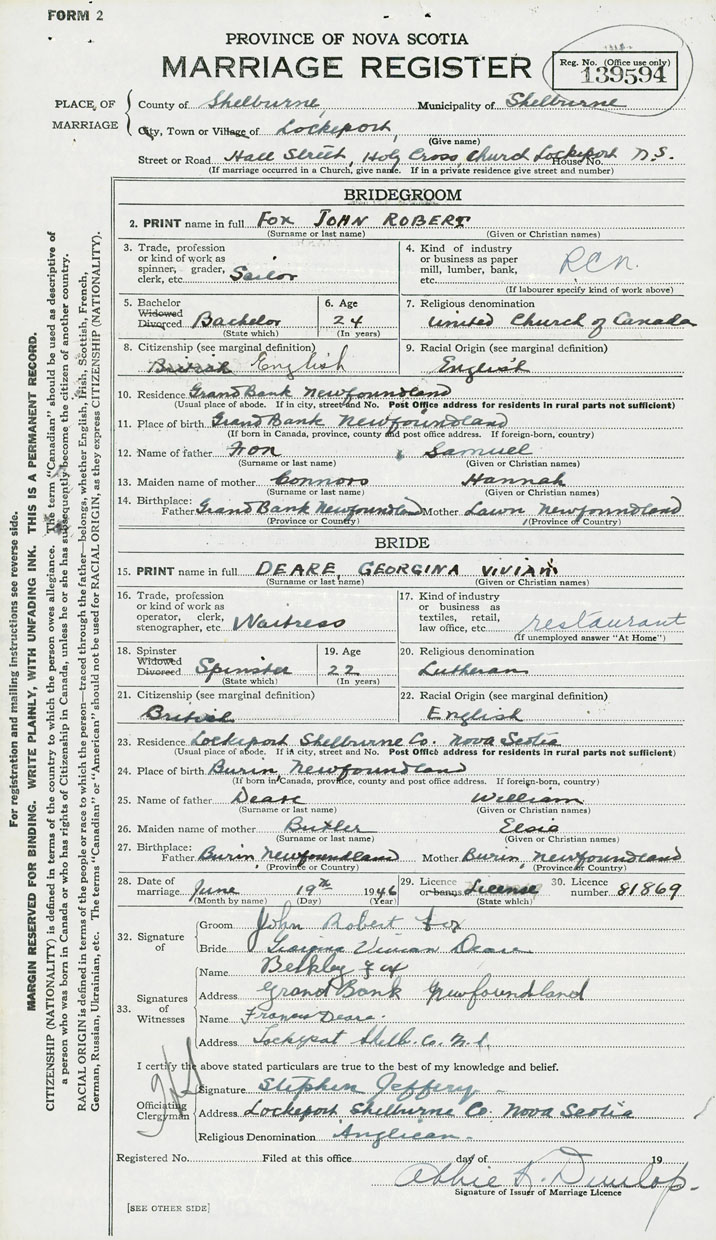 FORM 2
PROVINCE OF NOVA SCOTIA
MARRIAGE REGISTER
Reg. No. (Office use only)
139594
PLACE OF MARRIAGE
County of Shelburne, Municipality of Shelburne
City, Town or Village of Lockeport,
(Give name)
Street or Road Hall Street, Holy Cross Church Lockeport House No. N.S.
(If marriage occurred in a Church, give name. If in a private residence give street and number)
BRIDEGROOM
2. PRINT name in full FOX JOHN ROBERT
(Surname or last name) (Given or Christian names)
3. Trade, profession or kind of work as spinner, grader, clerk, etc. Sailor
4. Kind of industry or business as paper mill, lumber, bank, etc. RCN.
(If labourer specify kind of work above)
5. Bachelor Widowed Divorced Bachelor
(State which)
6. Age 24
(In years)
7. Religious denomination United Church of Canada
8. Citizenship (see marginal definition) British English
9. Racial Origin (see marginal definition) English
10. Residence Grand Bank Newfoundland
(Usual place of abode. If in city, street and No. Post Office address for residents in rural parts not sufficient)
11. Place of birth Grand Bank Newfoundland
(If born in Canada, province, county and post office address. If foreign-born, country)
12. Name of father Fox Samuel
(Surname or last name) (Given or Christian names)
13. Maiden name of mother Connors Hannah
(Surname or last name) (Given or Christian names)
14. Birthplace: Father Grand Bank Newfoundland Mother Lawn Newfoundland
(Province or Country) (Province or Country)
BRIDE
15. PRINT name in full DEARE, GEORGINA VIVIAN
(Surname or last name) (Given or Christian names)
16. Trade, profession or kind of work as operator, clerk, stenographer, etc. Waitress
17. Kind of industry or business as textiles, retail, law office, etc. restaurant
(If unemployed answer "At Home")
18. Spinster Widowed Divorced Spinster
(State which)
19. Age 22
(In years)
20. Religious denomination Lutheran
21. Citizenship (see marginal definition) British
22. Racial Origin (see marginal definition) English
23. Residence Lockeport Shelburne Co. Nova Scotia
(Usual place of abode. If in city, street and No. Post Office address for residents in rural parts not sufficient)
24. Place of birth Burin, Newfoundland
(If born in Canada, province, county and post office address. If foreign-born, country)
25. Name of father Deare William
(Surname or last name) (Given or Christian names)
26. Maiden name of mother Butler Elsie
(Surname or last name) (Given or Christian names)
27. Birthplace: Father Burin, Newfoundland Mother Burin, Newfoundland
(Province or Country) (Province or Country)
28. Date of marriage June 19th 1946
(Month by name) (Day) (Year)
29. Licence or banns License
(State which)
30. Licence number 81869
32. Signature of
Groom John Robert Fox
Bride Georgina Vivian Deare
33. Signatures of Witnesses
Name Berkley Fox
Address Grand Bank Newfoundland
Name Frances Deare.
Address Lockeport Shelb. Co. N.S.
I certify the above stated particulars are true to the best of my knowledge and belief.
Officiating Clergyman
Signature Stephen Jeffery
Address Lockeport Shelburne Co. Nova Scotia
Religious Denomination Anglican
Registered No. Filed at this office day of 19
Abbie K. Dunlop.
Signature of Issuer of Marriage Licence
[SEE OTHER SIDE]
For registration and mailing instructions see reverse side.
MARGIN RESERVED FOR BINDING. WRITE PLAINLY, WITH UNFADING INK. THIS IS A PERMANENT RECORD.
CITIZENSHIP (NATIONALITY) is defined in terms of the country to which the person owes allegiance. The term "Canadian" should be used as descriptive of
a person who was born in Canada or who has rights of Citizenship in Canada, unless he or she has subsequently become the citizen of another country.
RACIAL ORIGIN is defined in terms of the people or race to which the person—traced through the father—belongs, whether English, Irish, Scottish, French,
German, Russian, Ukrainian, etc. The terms "Canadian" or "American" should not be used for RACIAL ORIGIN, as they express CITIZENSHIP (NATIONALITY).